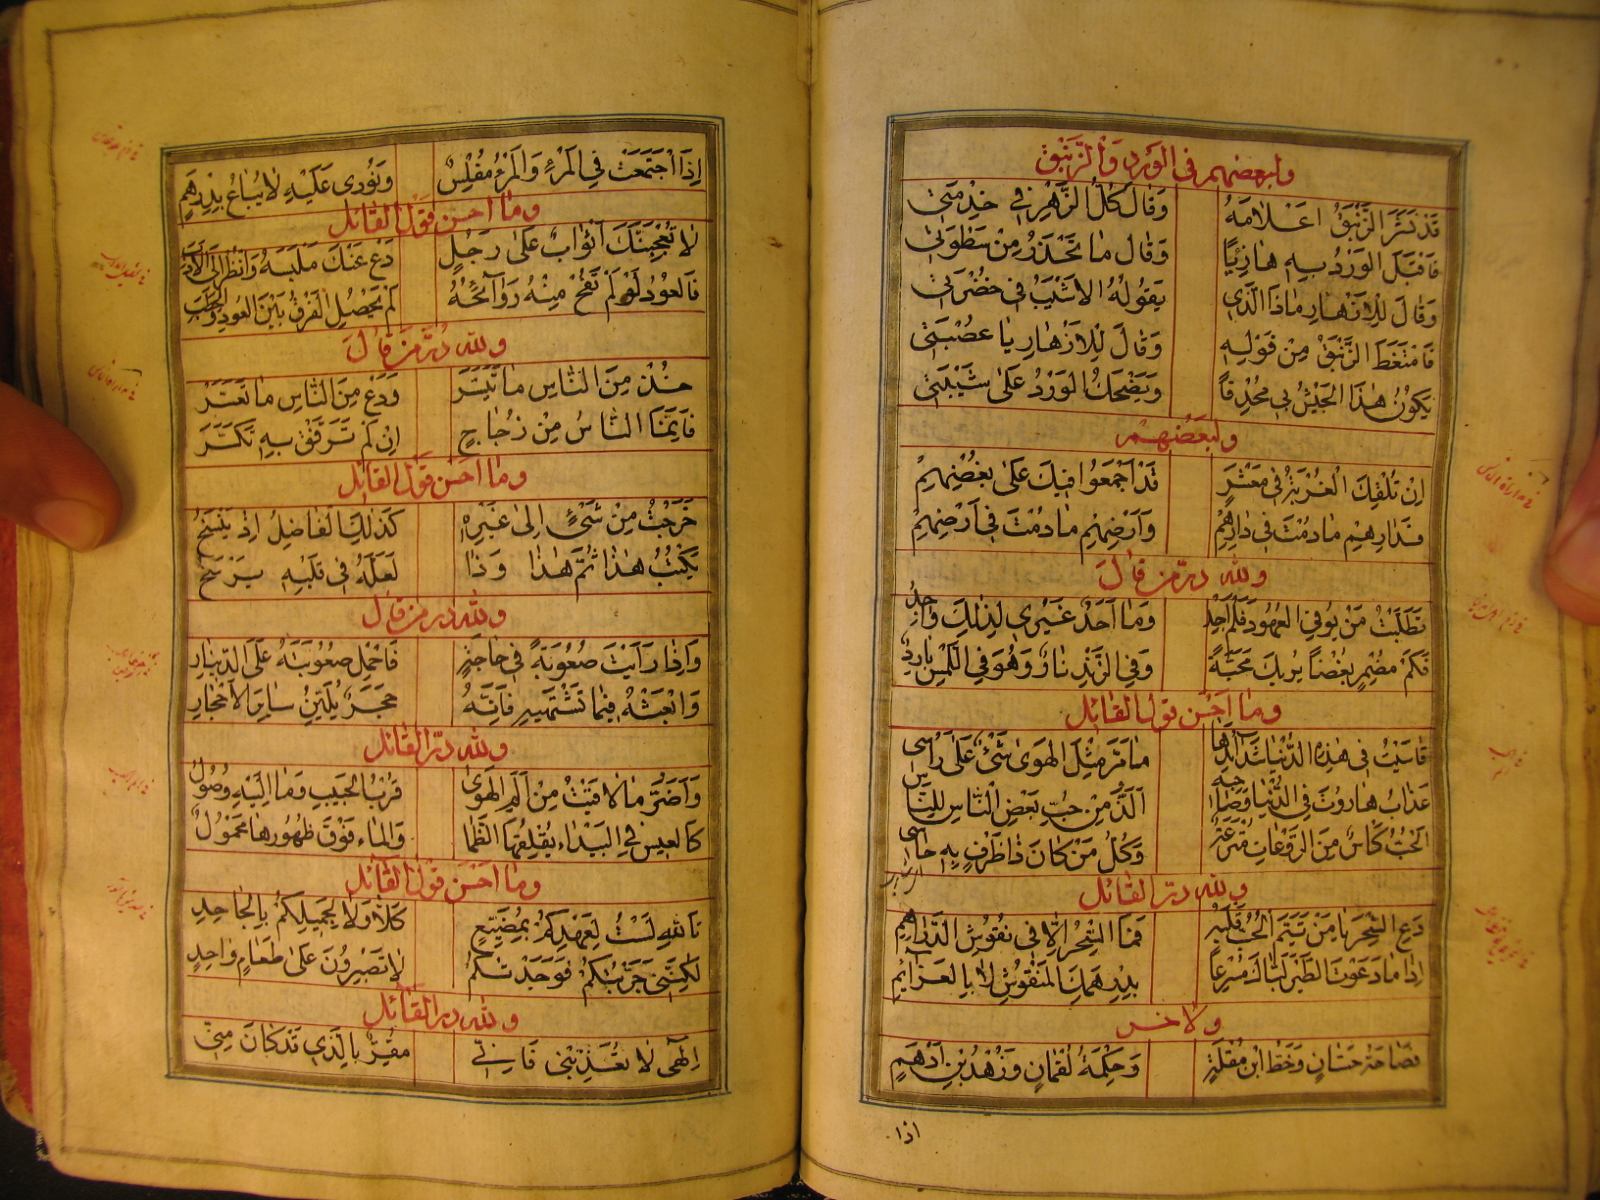 ولبعضهم في الورد والزنبق
قد نشر الزنبق اعلامه وقال كل الزهر في خدمتي
فاقبل الورد به هازئا وقال ما تحذر من سطوتي
وقال للازهار ماذا الذي يقوله الاشيب في حضرتي
فامتغط الزنبق من قوله وقال للازهار يا عصبتي
يكون هذا الجيش بي محدقا ويضحك الورد على شيبتي
ولبعضهم
ان تلقك الغربة في معشر قد اجمعوا فيك على بعضهم
فدارهم ما دمت في دارهم وارضهم ما دمت في ارضهم
ولله در من قال
تطلبت من يوفي العهود فلم اجد وما احد غيري لذلك واجد
فكم مضمر بغضا يريك محبة وفي الزند نار وهو في اللمس بارد
وما احسن قول القائل
قاسيت في هذه الدنيا شدائدها ما مر مثل الهوى شئ على راسي
عذاب هاروت في الدنيا وصاحبه الذ من حب بعض الناس للناس
الحب كاس من الروعات مترعة وكل من كان ذا ظرف به حاسي
ولله در القائل
دع الشعر يا من تيم الحب قلبه فما الشعر الا في نقوش الدراهم
اذا ما دعوت الطير لباك مسرعا بديهمك المنقوش لا بالعزائم
ولاخر
فصاحة حسان وخط ابن مقلة وحكمة لقمان وزهد بن ادهم
اذا
اذا اجتمعت في المرء والمرء مفلس ونودى عليه لا يباع بدرهم
وما احسن قول القائل
لا تعجبنك اثواب على رجل دع عنك ملبسه وانظر الى الادب
فالعود لو لم تفح منه روائحه لم يحصل الفرق بين العود والحطب
ولله در من قال
خذ من الناس ما تيسر ودع من الناس ما تعسر
فانما الناس من زجاج ان لم ترفق به تكسر
وما احسن قول القائل
خرجت من شئ الى غيره كذلك الفاضل اذ ينسخ
يكتب هذا ثم هذا وذا لعله في قلبه يرسخ
ولله در من قال
واذا رايت صعوبة في حاجة فاحمل صعوبته على الدينار
وابعثه فيما تشتهيه فانه حجر يلين سائر الاحجار
ولله در القائل
واضر ما لاقيت من الم الهوى قرب الحبيب وما اليه وصول
كالعيس في البيداء يقتلها الظما والماء فوق ظهورها محمول
وما احسن قول القائل
تالله لست لعهدكم بمضيع كلا ولا لجميلكم بالجاحد
لكنني جربتكم فوجدتكم لا تصبرون على طعام واحد
ولله در القائل
الهى لا تعذبنى فاني مقر بالذي قد كان مني